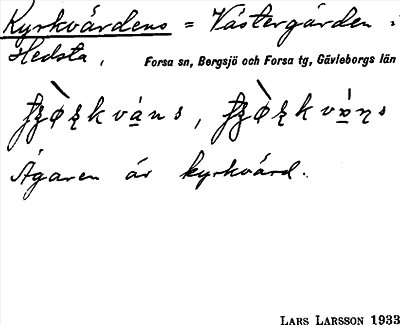 Kyrkvärdens = Västergården i
Hedsta, Forsa sn, Bergsjö och Forsa tg, Gävleborgs län
Ägaren är kyrkvärd.
LARS LARSSON 1933